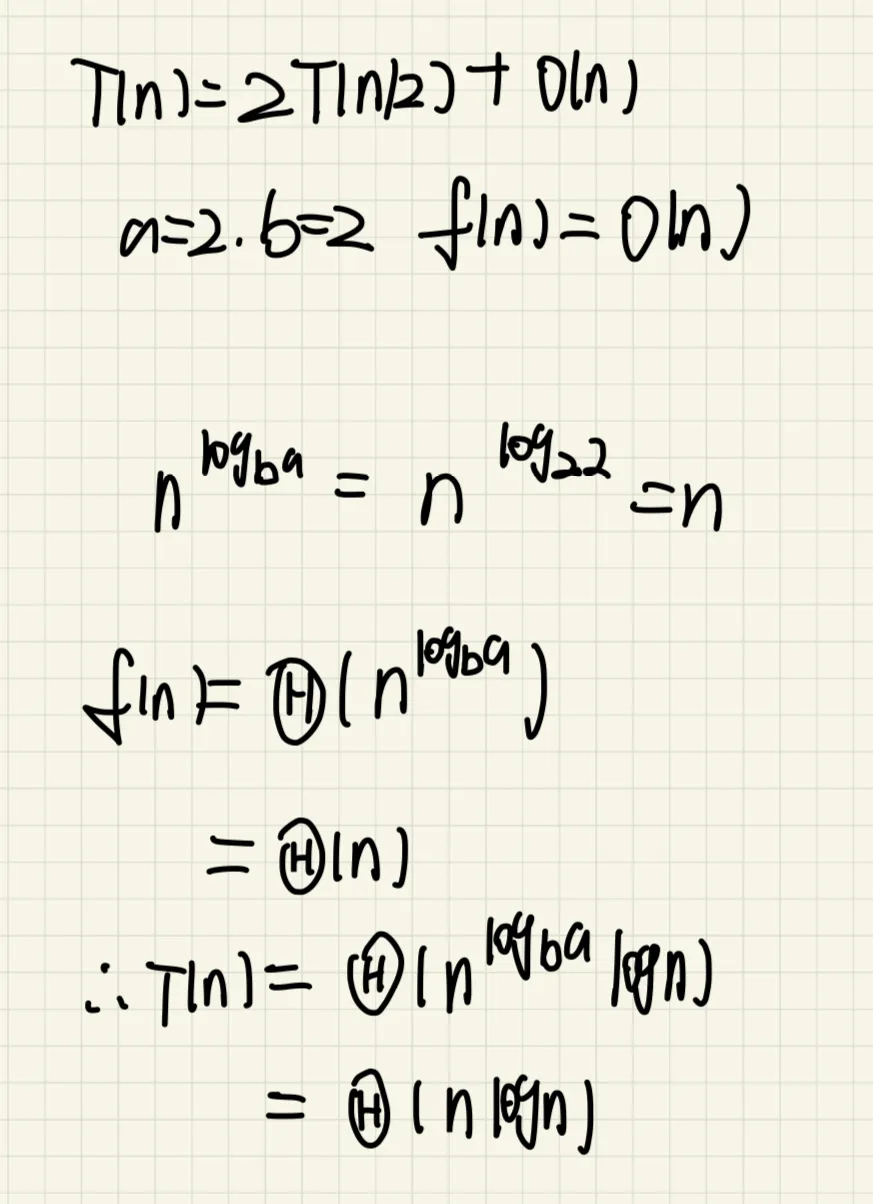 T(n)=2T(n/2)+O(n)
a=2.b=2 f(n)=O(n)
n^{log_b a} = n^{log_2 2} =n
f(n)=Θ(n^{log_b a})
=Θ(n)
∴T(n)=Θ(n^{log_b a} logn)
=Θ(nlogn)